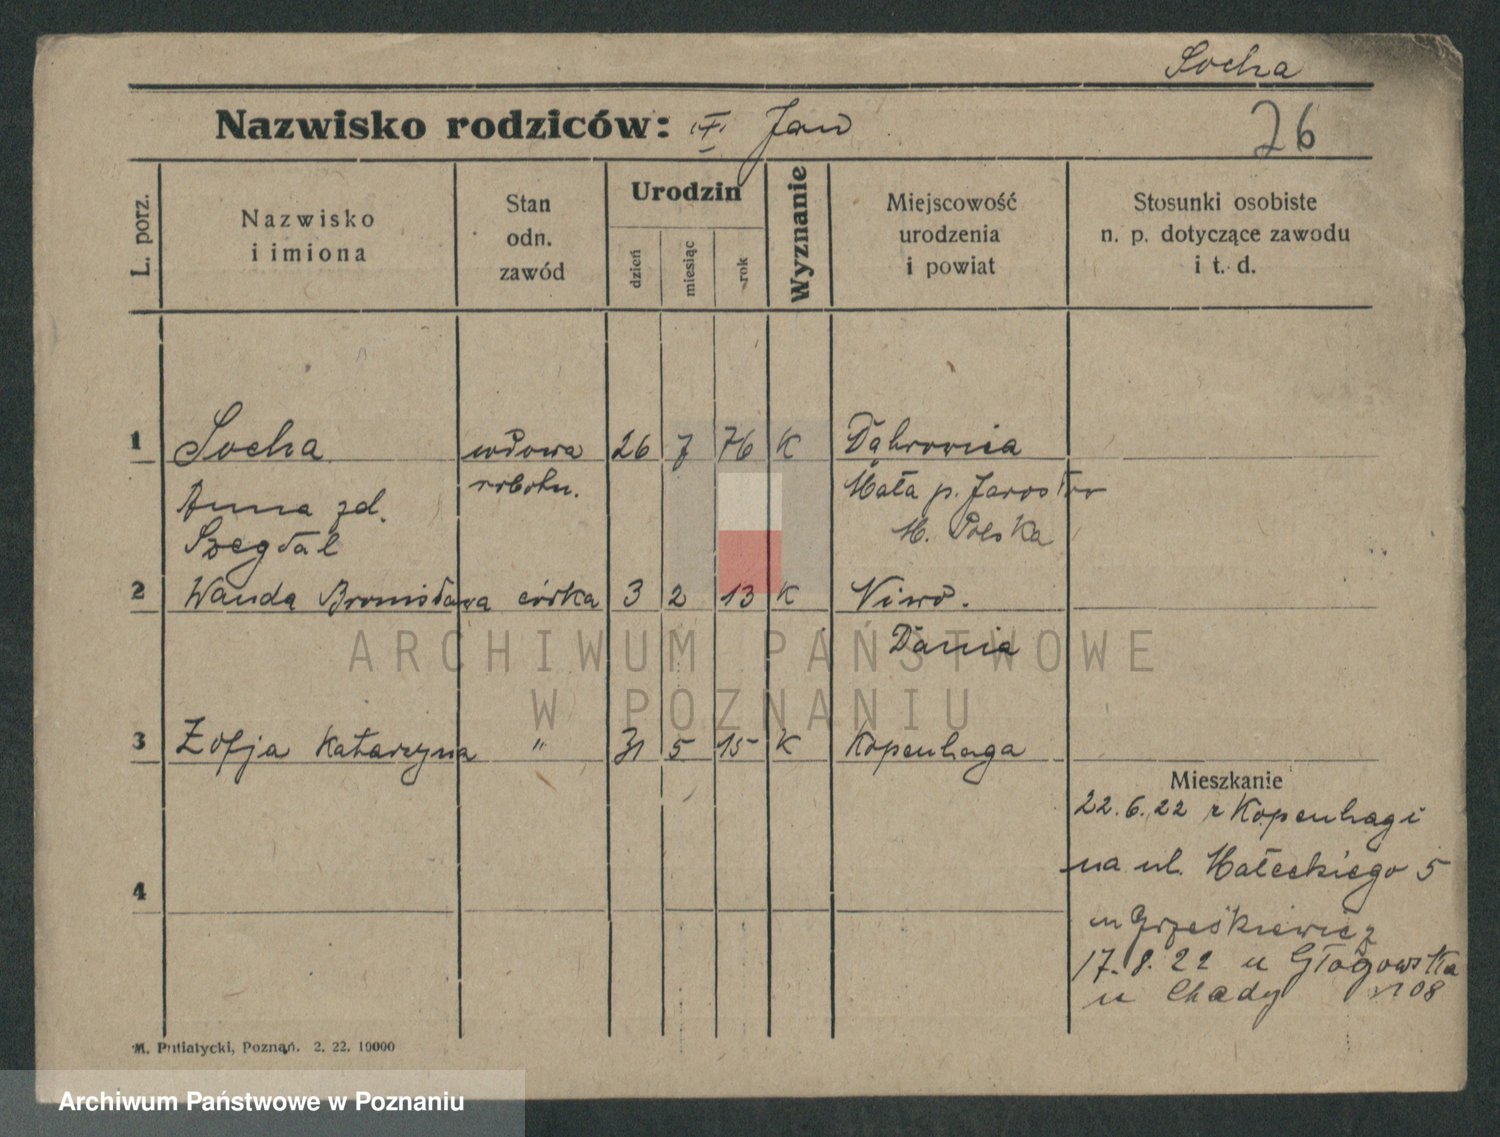 Socha
Nazwisko rodziców: Jan
76
L. porz.
Nazwisko
i imiona
Stan
odn.
zawód
Urodzin
dzień
miesiąc
rok
Wyznanie
Miejscowość
urodzenia
i powiat
Stosunki osobiste
n. p. dotyczące zawodu
i t. d.
1 Socha wdowa 26 7 76 K Dąbrowica
robotn. Mała p. Jarosław
Anna zd.
M. Polska
Szegdał
2 Wanda Bronisława córka 3 2 13 K
Dania
ARCHIWUM PAŃSTWOWE
W POZNANIU
3 Zofja Katarzyna " 31 5 15 K Kopenhaga
Mieszkanie
22.6.22 z Kopenhagi
na ul. Małeckiego 5
u Grześkiewicz
4
17.8.22 u Głogowska
u Chady 108
M. Putiatycki, Poznań. 2. 22. 10000
Archiwum Państwowe w Poznaniu